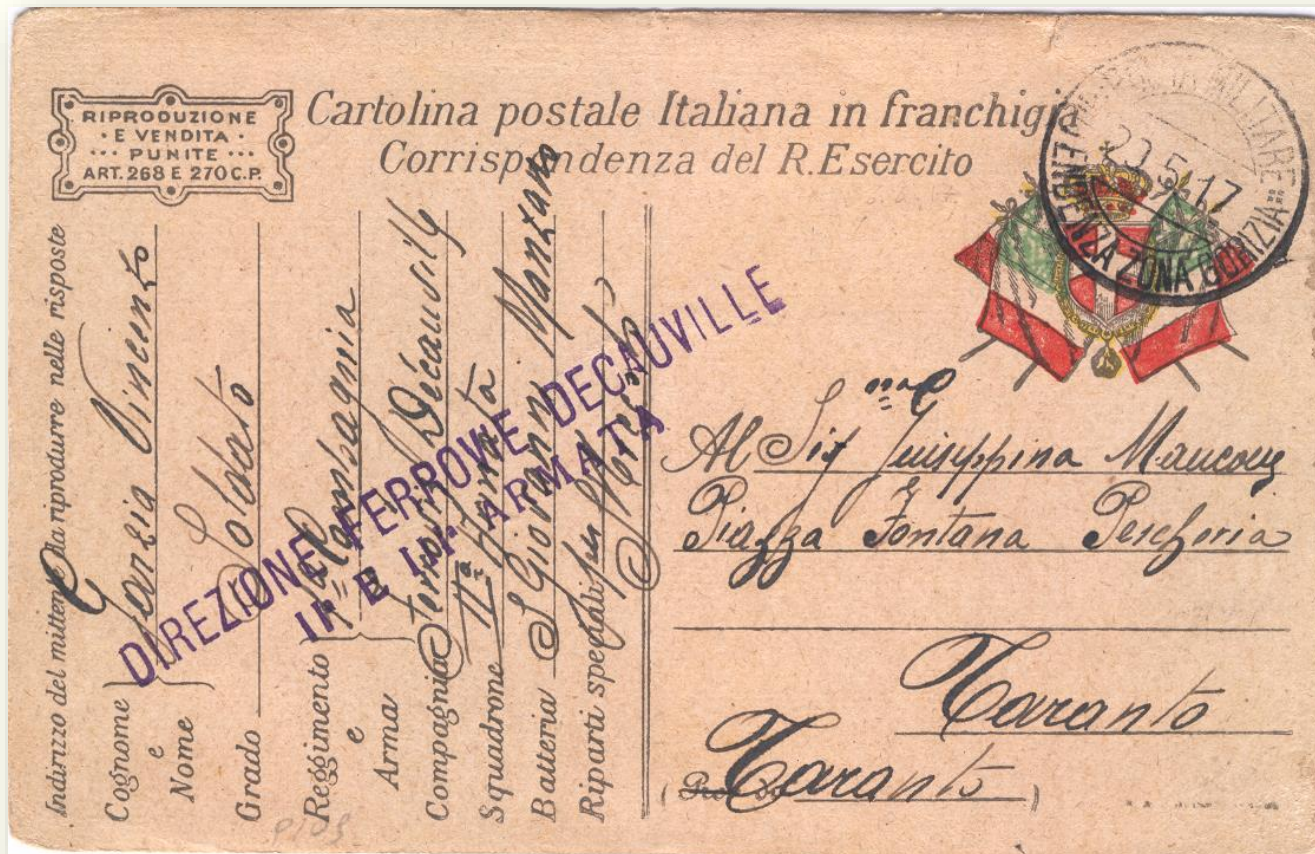 RIPRODUZIONE
· E VENDITA ·
··· PUNITE ···
ART. 268 E 270 C.P.
Cartolina postale Italiana in franchigia
Corrispondenza del R. Esercito
29.5.17
ZONA GORIZIA
Indirizzo del mittente da riprodurre nelle risposte
Cognome e Nome Garzia Vincenzo
Grado Soldato
Reggimento e Arma Compagnia
Compagnia Ferrovie
Squadrone IIª Armata
Batteria S Giovanni Manzano
Riparti speciali per
DIREZIONE FERROVIE DECAUVILLE
IIª E IIIª ARMATA
Al Sig Giuseppina
Piazza Fontana Pescheria
Taranto
Taranto